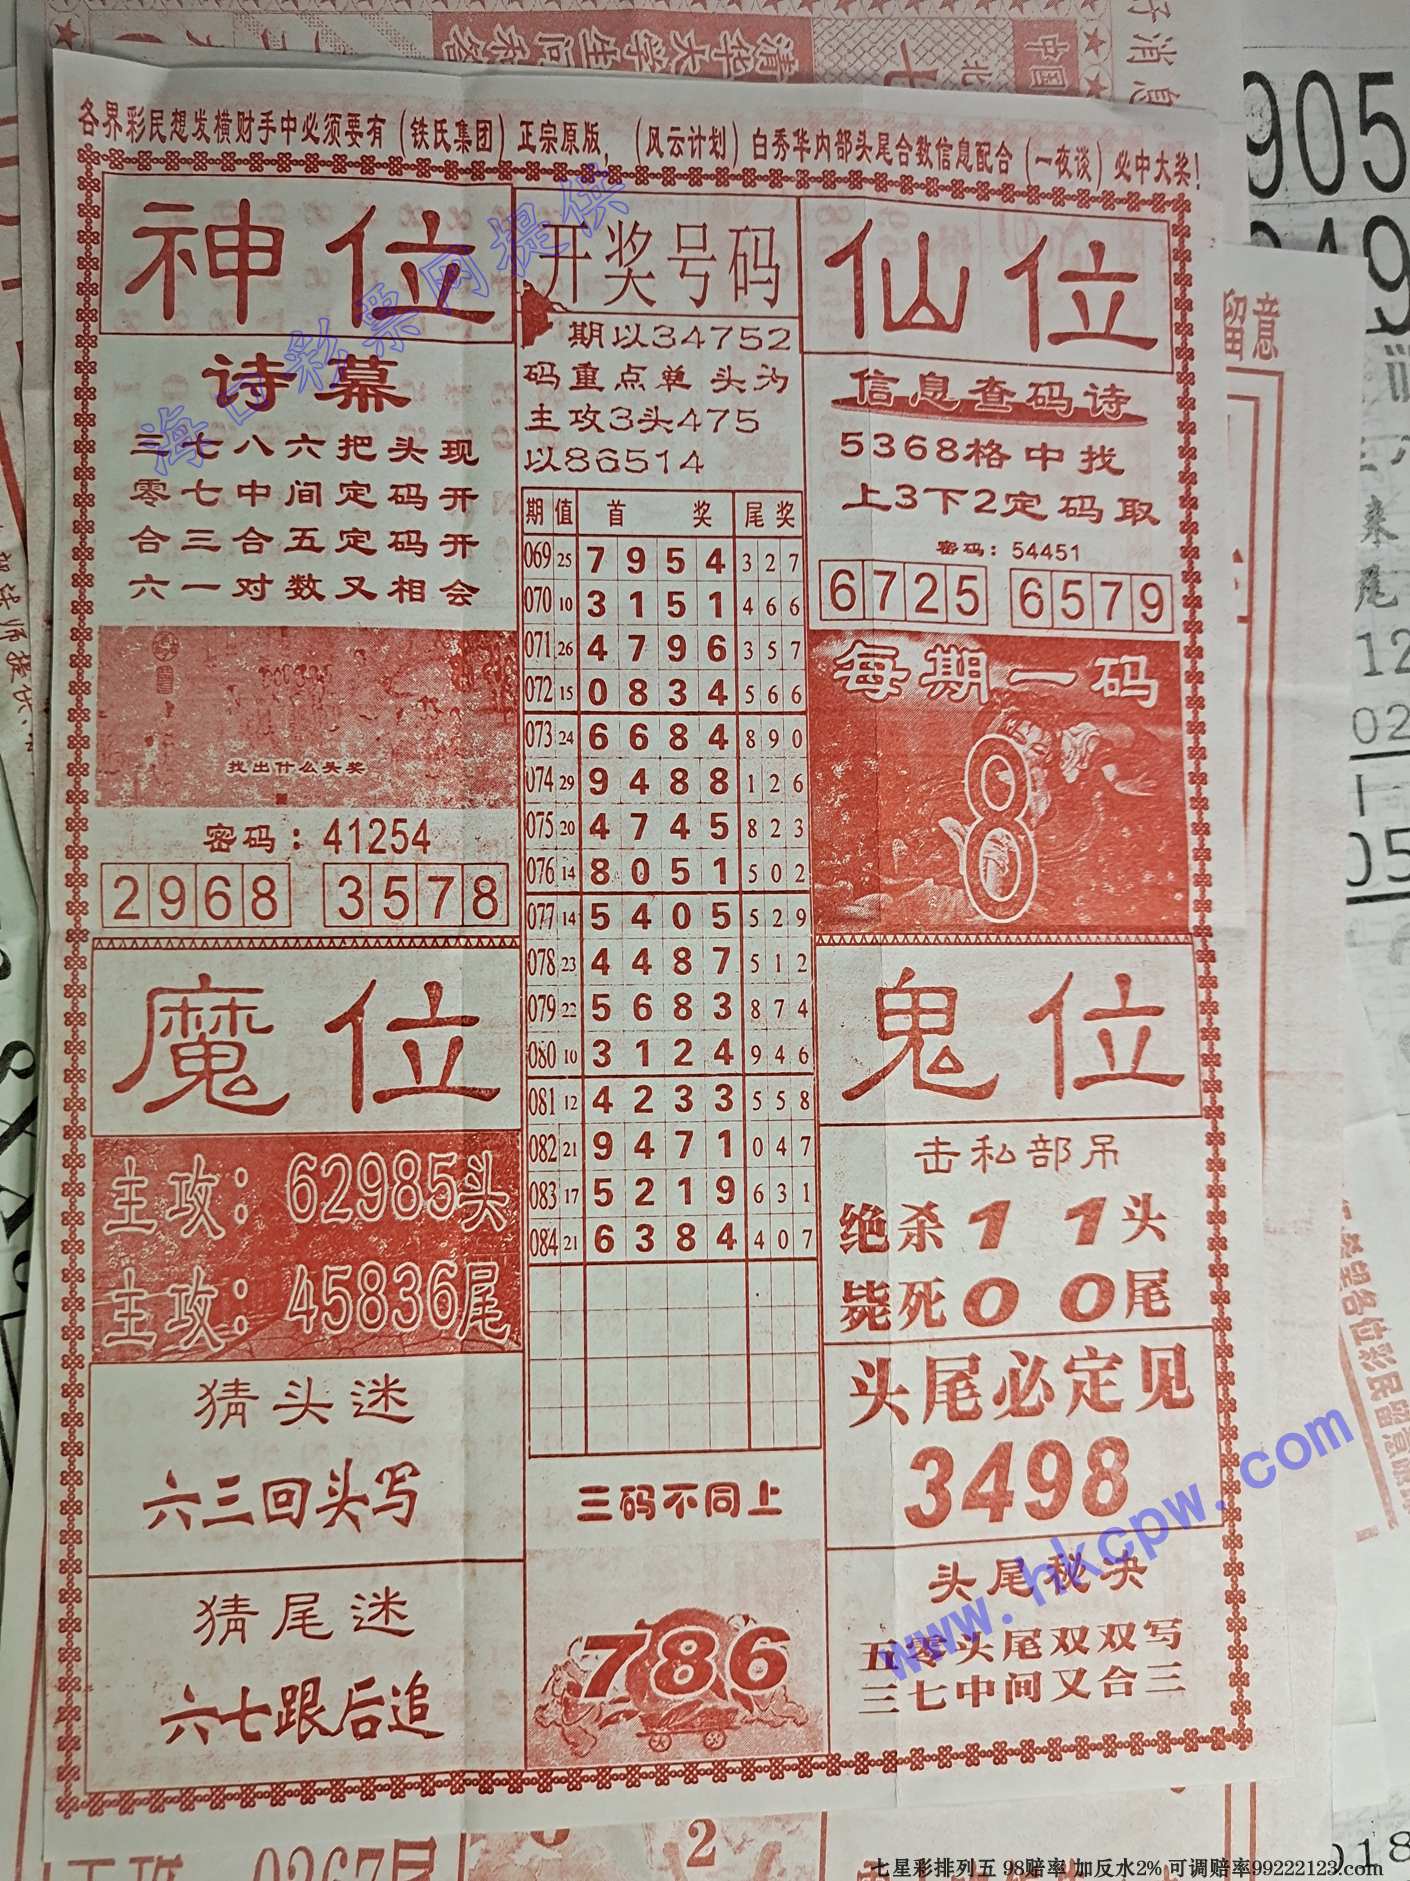 各界彩民想发横财手中必须要有（铁氏集团）正宗原版，（风云计划）白秀华内部头尾合数信息配合（一夜谈）必中大奖！
神位
诗幕
三七八六把头现
零七中间定码开
合三合五定码开
六一对数又相会
找出什么头奖
密码：41254
2968 3578
魔位
主攻：62985头
主攻：45836尾
猜头迷
六三回头写
猜尾迷
六七跟后追
开奖号码
期以34752
码重点单 头为
主攻3头475
以86514
期 值 首 奖 尾 奖
069 25 7 9 5 4 3 2 7
070 10 3 1 5 1 4 6 6
071 26 4 7 9 6 3 5 7
072 15 0 8 3 4 5 6 6
073 24 6 6 8 4 8 9 0
074 29 9 4 8 8 1 2 6
075 20 4 7 4 5 8 2 3
076 14 8 0 5 1 5 0 2
077 14 5 4 0 5 5 2 9
078 23 4 4 8 7 5 1 2
079 22 5 6 8 3 8 7 4
080 10 3 1 2 4 9 4 6
081 12 4 2 3 3 5 5 8
082 21 9 4 7 1 0 4 7
083 17 5 2 1 9 6 3 1
084 21 6 3 8 4 4 0 7
三码不同上
786
仙位
信息查码诗
5368格中找
上3下2定码取
密码：54451
6725 6579
每期一码
8
鬼位
击私部吊
绝杀1 1头
毙死0 0尾
头尾必定见
3498
头尾秘决
五零头尾双双写
三七中间又合三
海口彩票网提供
www.hkcpw.com
留意
905
2
018
七星彩排列五 98赔率 加反水2% 可调赔率99222123.com